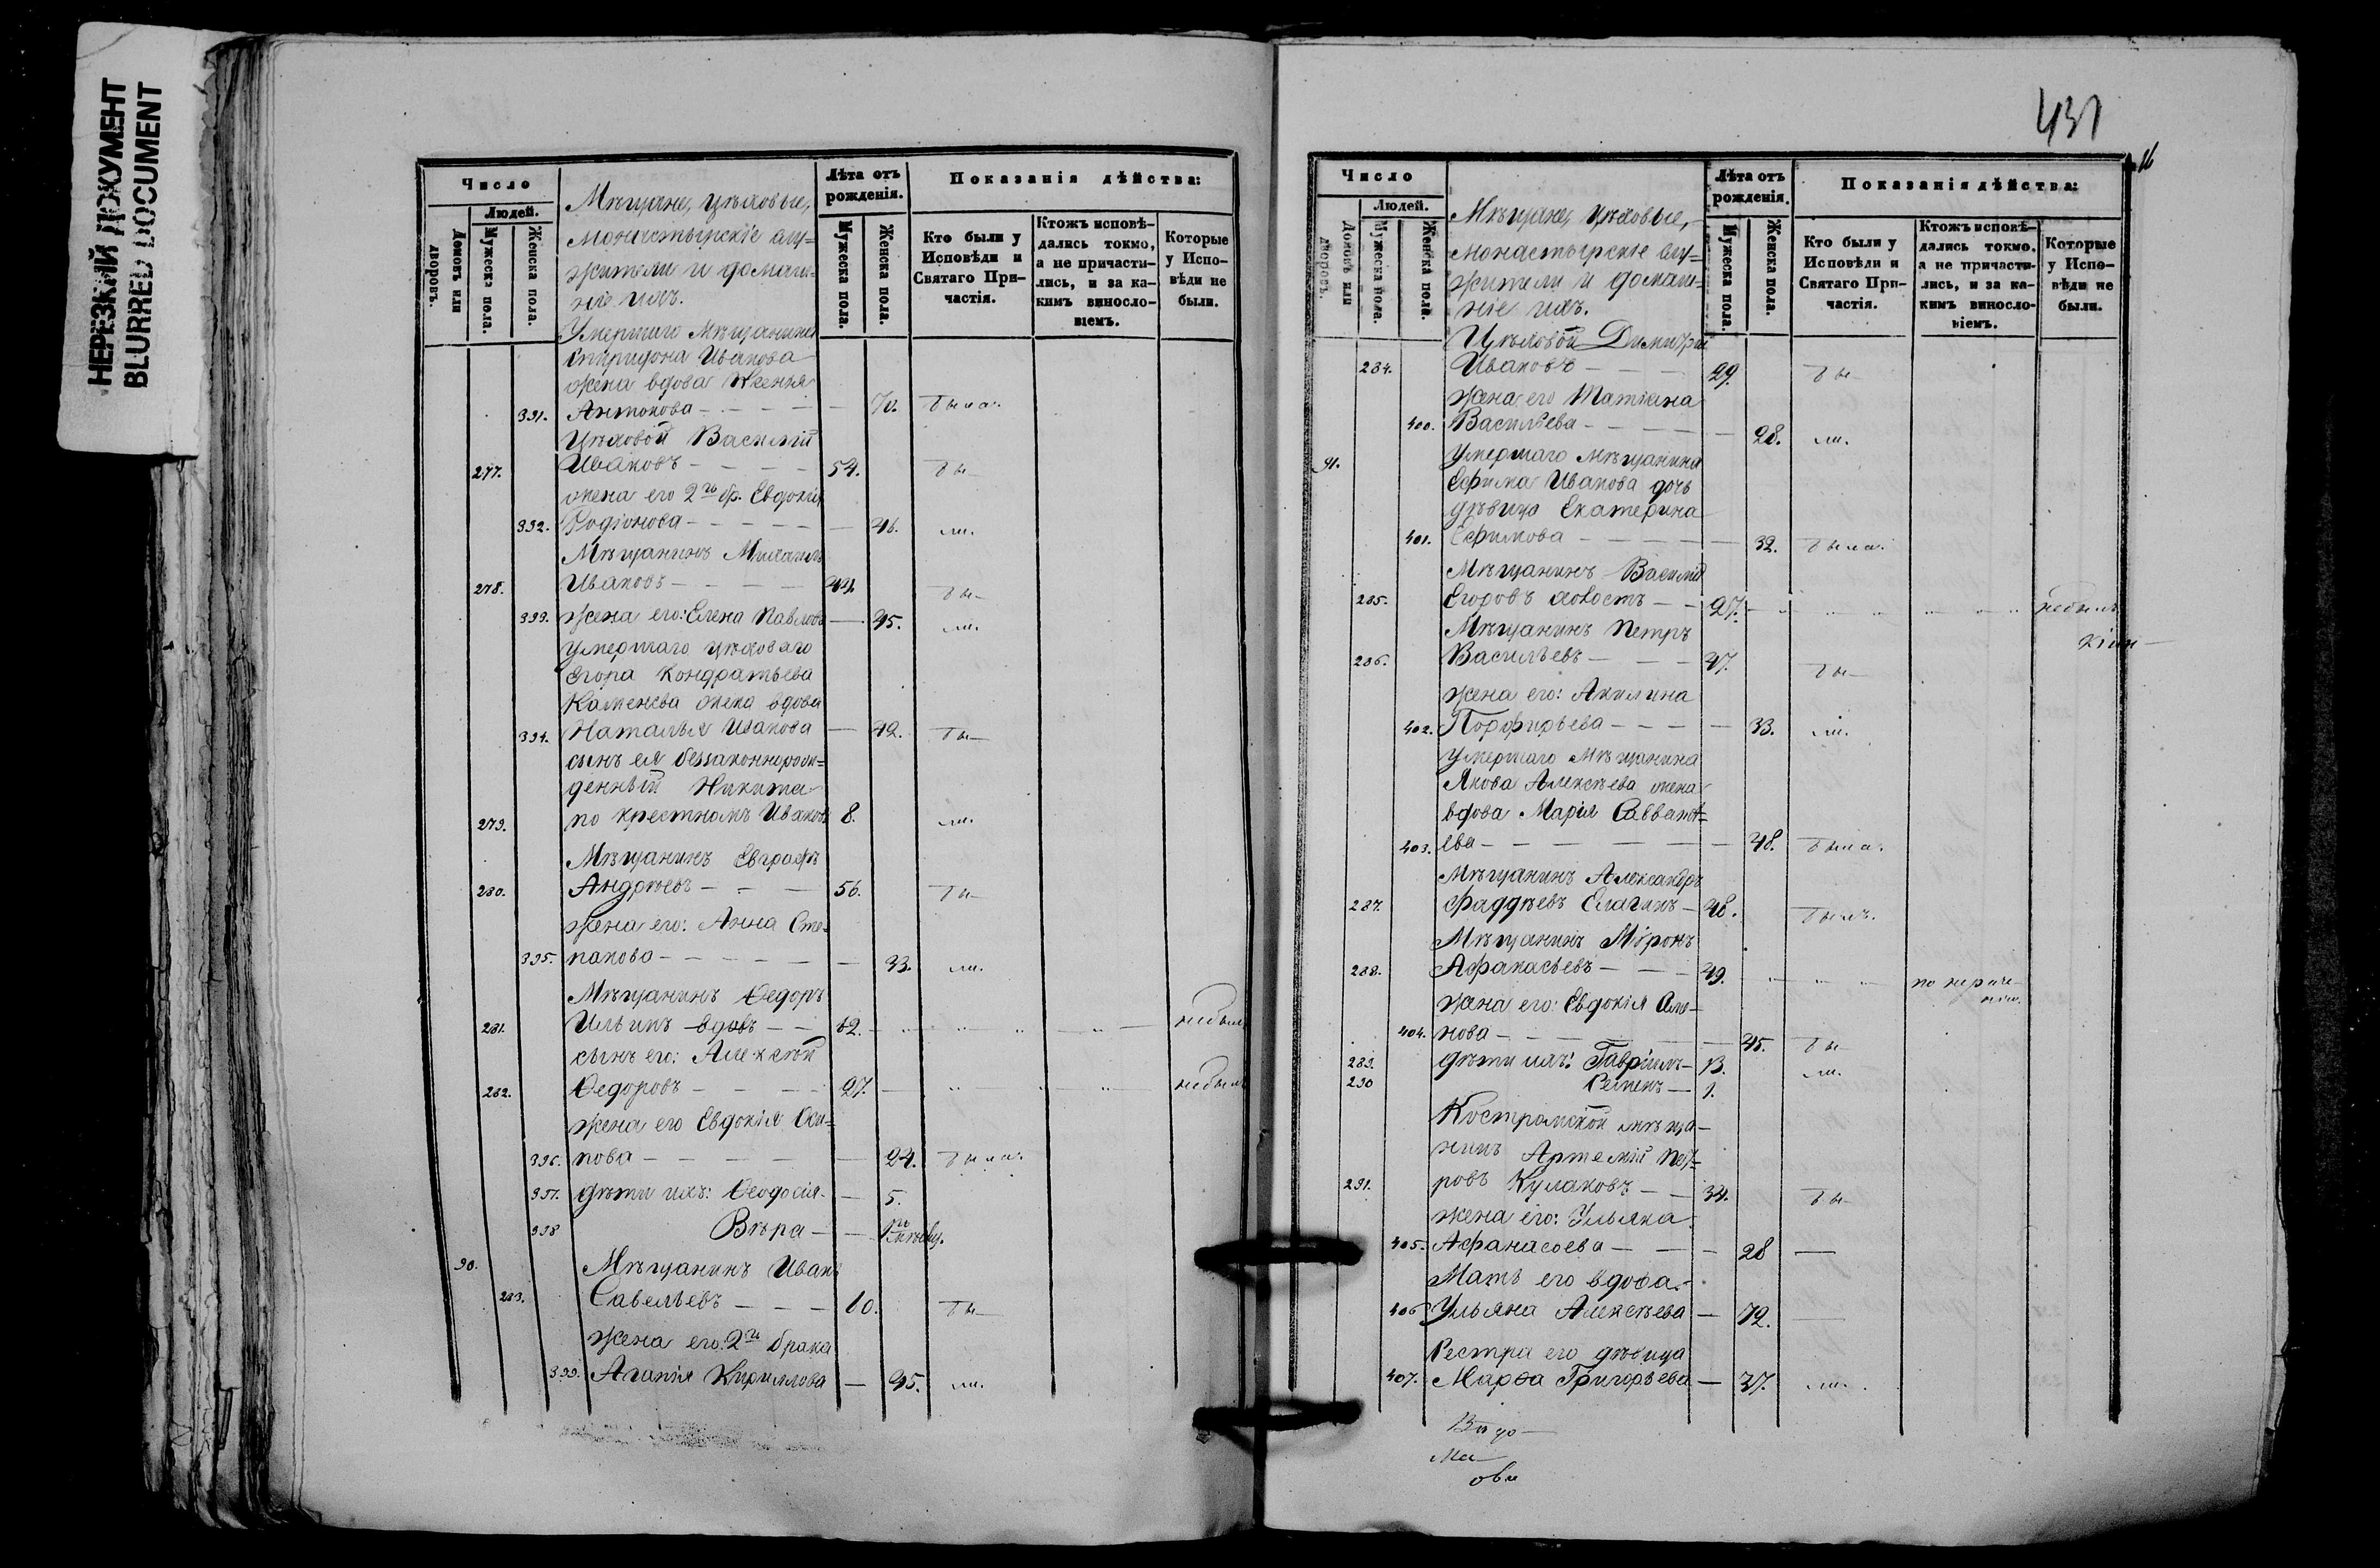 НЕРЕЗКИЙ ДОКУМЕНТ
BLURRED DOCUMENT
Число
Людей.
Домовъ или дворовъ.
Мужеска пола.
Женска пола.
Мѣщане, цѣховые,
монастырскіе слу=
жители и домаш=
ніе ихъ.
Лѣта отъ рожденія.
Мужеска пола.
Женска пола.
Показанія дѣйства:
Кто были у Исповѣди и Святаго При-частія.
Ктожъ исповѣ-дались токмо, а не причасти-лись, и за ка-кимъ винословіемъ.
Которые у Испо-вѣди не были.
Умершаго Мѣщанина
Спиридона Иванова
жена вдова Ксенья
391. Антонова — 70. была.
Цѣховой Василій
277. Ивановъ — 54. бы—
жена его 2го бр. Евдокія
392. Родіонова — 46. ли.
Мѣщанинъ Михаилъ
278. Ивановъ — 44. бы—
393. жена его: Елена Павлов — 45. ли.
умершаго цѣховаго
Егора Кондратьева
Каменева жена вдова
394. Наталья Иванова — 42. бы—
сынъ ея беззаконнорож=
денный Никита
279. по крестномъ Иванов 8. ли.
Мѣщанинъ Евграфъ
280. Андреевъ — 56. бы—
жена его: Анна Сте=
395. панова — 33. ли.
Мѣщанинъ Ѳедоръ
281. Ильинъ вдовъ — 62. небылъ
сынъ его: Алексѣй
282. Ѳедоровъ — 27. небылъ
жена его Евдокія Оси=
396. пова — 24. была.
397. дѣти ихъ: Ѳеодосія — 5.
398 Вѣра —
90. Мѣщанинъ Иванъ
283. Савельевъ — 60. бы—
жена его: 2го брака
399. Агапія Кириллова — 45. ли.
431
Число
Людей.
Домовъ или дворовъ.
Мужеска пола.
Женска пола.
Мѣщане, цѣховые,
монастырскіе слу=
жители и домаш=
ніе ихъ.
Лѣта отъ рожденія.
Мужеска пола.
Женска пола.
Показанія дѣйства:
Кто были у Исповѣди и Святаго При-частія.
Ктожъ исповѣ-дались токмо, а не причасти-лись, и за ка-кимъ винословіемъ.
Которые у Испо-вѣди не были.
Цѣховой Димитрій
284. Ивановъ — 29. бы—
жена его Татіана
400. Васильева — 28. ли.
91. Умершаго мѣщанина
Ефима Иванова дочь
дѣвица Екатерина
401. Ефимова — 32. была.
Мѣщанинъ Василій
285. Егоровъ холостъ — 27. небылъ
Мѣщанинъ Петръ
286. Васильевъ — 47. бы—
жена его: Акилина
402. Порфирьева — 33. ли.
умершаго мѣщанина
Якова Алексѣева жена
вдова Марія Савват=
403. ева — 48. была.
Мѣщанинъ Александръ
287. Фаддѣевъ Елагинъ — 48. былъ.
Мѣщанинъ Мѵронъ
288. Афанасьевъ — 49.
жена его: Евдокія
404. нова — 45. бы—
289. дѣти ихъ: Гавріилъ — 13. ли.
290 Семенъ — 1.
Костромской мѣща—
нинъ Артемій Пет=
291. ровъ Кулаковъ — 34. бы—
жена его: Ульяна
405. Афанасьева — 28 —
Мать его вдова
406 Ульяна Алексѣева — 72. —
Сестра его дѣвица
407. Марѳа Григорьева — 37. ли.